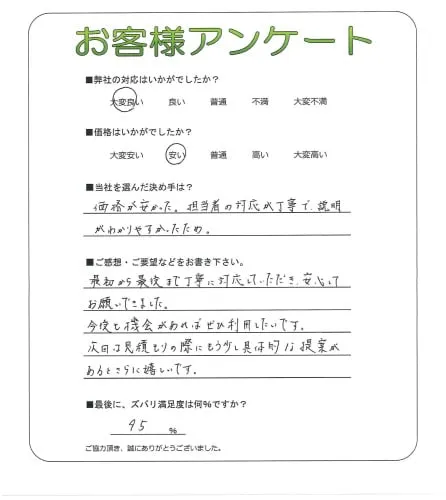 お客様アンケート
■弊社の対応はいかがでしたか?
大変良い 良い 普通 不満 大変不満
■価格はいかがでしたか?
大変安い 安い 普通 高い 大変高い
■当社を選んだ決め手は?
価格が安かった。担当者の対応が丁寧で、説明
がわかりやすかったため。
■ご感想・ご要望などをお書き下さい。
最初から最後まで丁寧に対応していただき、安心して
お願いできました。
今後も機会があればぜひ利用したいです。
次回は見積もりの際にもう少し具体的な提案が
あるとさらに嬉しいです。
■最後に、ズバリ満足度は何%ですか?
95 %
ご協力頂き、誠にありがとうございました。